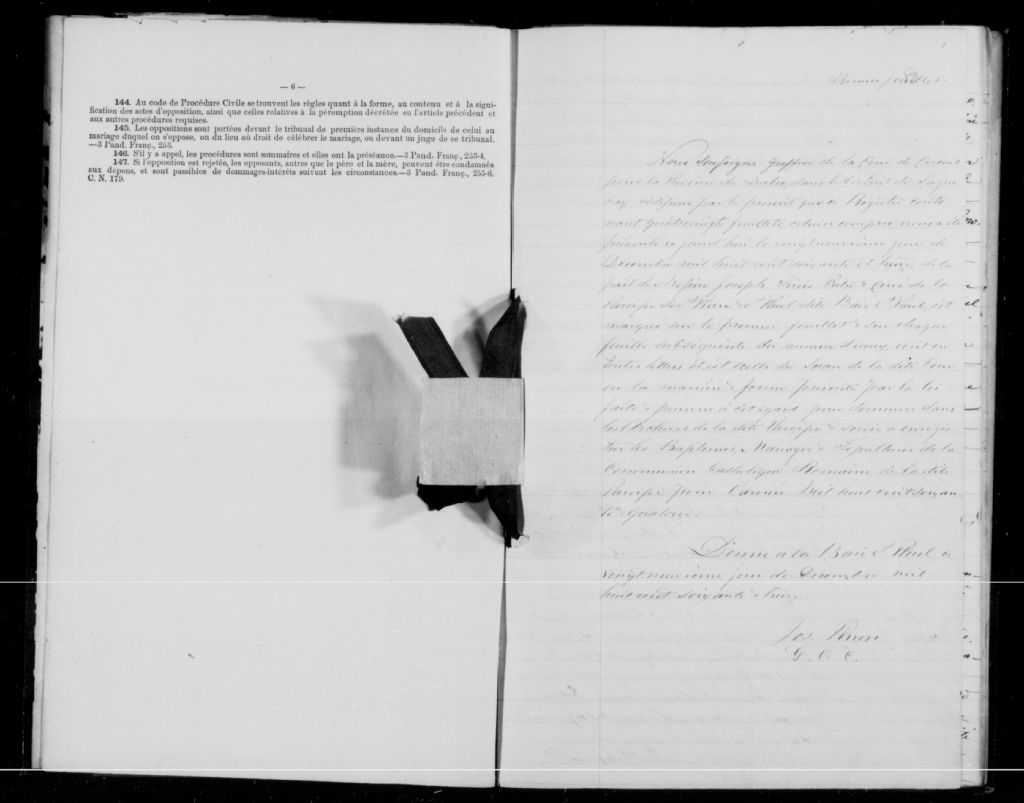 — 6 —
144. Au code de Procédure Civile se trouvent les règles quant à la forme, au contenu et à la signi-
fication des actes d'opposition, ainsi que celles relatives à la péremption décrétée en l'article précédent et
aux autres procédures requises.
145. Les oppositions sont portées devant le tribunal de première instance du domicile de celui au
mariage duquel on s'oppose, ou du lieu où droit de célébrer le mariage, ou devant un juge de ce tribunal.
—3 Pand. Franç., 253.
146. S'il y a appel, les procédures sont sommaires et elles ont la préséance.—3 Pand. Franç., 253-4.
147. Si l'opposition est rejetée, les opposants, autres que le père et la mère, peuvent être condamnés
aux dépens, et sont passibles de dommages-intérêts suivant les circonstances.—3 Pand. Franç., 255-6.
C. N. 179.
Premier feuillet
Nous Soussigné Greffier de la Cour de Circuit
pour la Province de Québec dans le District de Sague
nay certifions par le présent que ce Registre conte
nant quatrevingts feuillets celui ci compris nous a été
présenté ce jourd'hui le vingt neuvième jour de
Décembre mil huit cent soixante et treize de la
part de Messire Joseph Sirois Prêtre & Curé de la
Paroisse St Pierre & St Paul dite Baie St Paul est
marqué sur le premier feuillet & sur chaque
feuille subséquente du numéro d'iceux écrit en
toutes lettres et est scellé du Sceau de la dite Cour
en la manière & forme prescrite par la loi
faite & pourvue à cet égard pour demeurer dans
les Archives de la dite Paroisse & servir à enregis
trer les Baptêmes, Mariages & Sépultures de la
Communion Catholique Romaine de la dite
Paroisse pour l'année Mil huit cent soixan
te & quatorze.
Donné à la Baie St Paul ce
vingt neuvième jour de Décembre mil
huit cent soixante & treize.
Jos Perron
G. C. C.